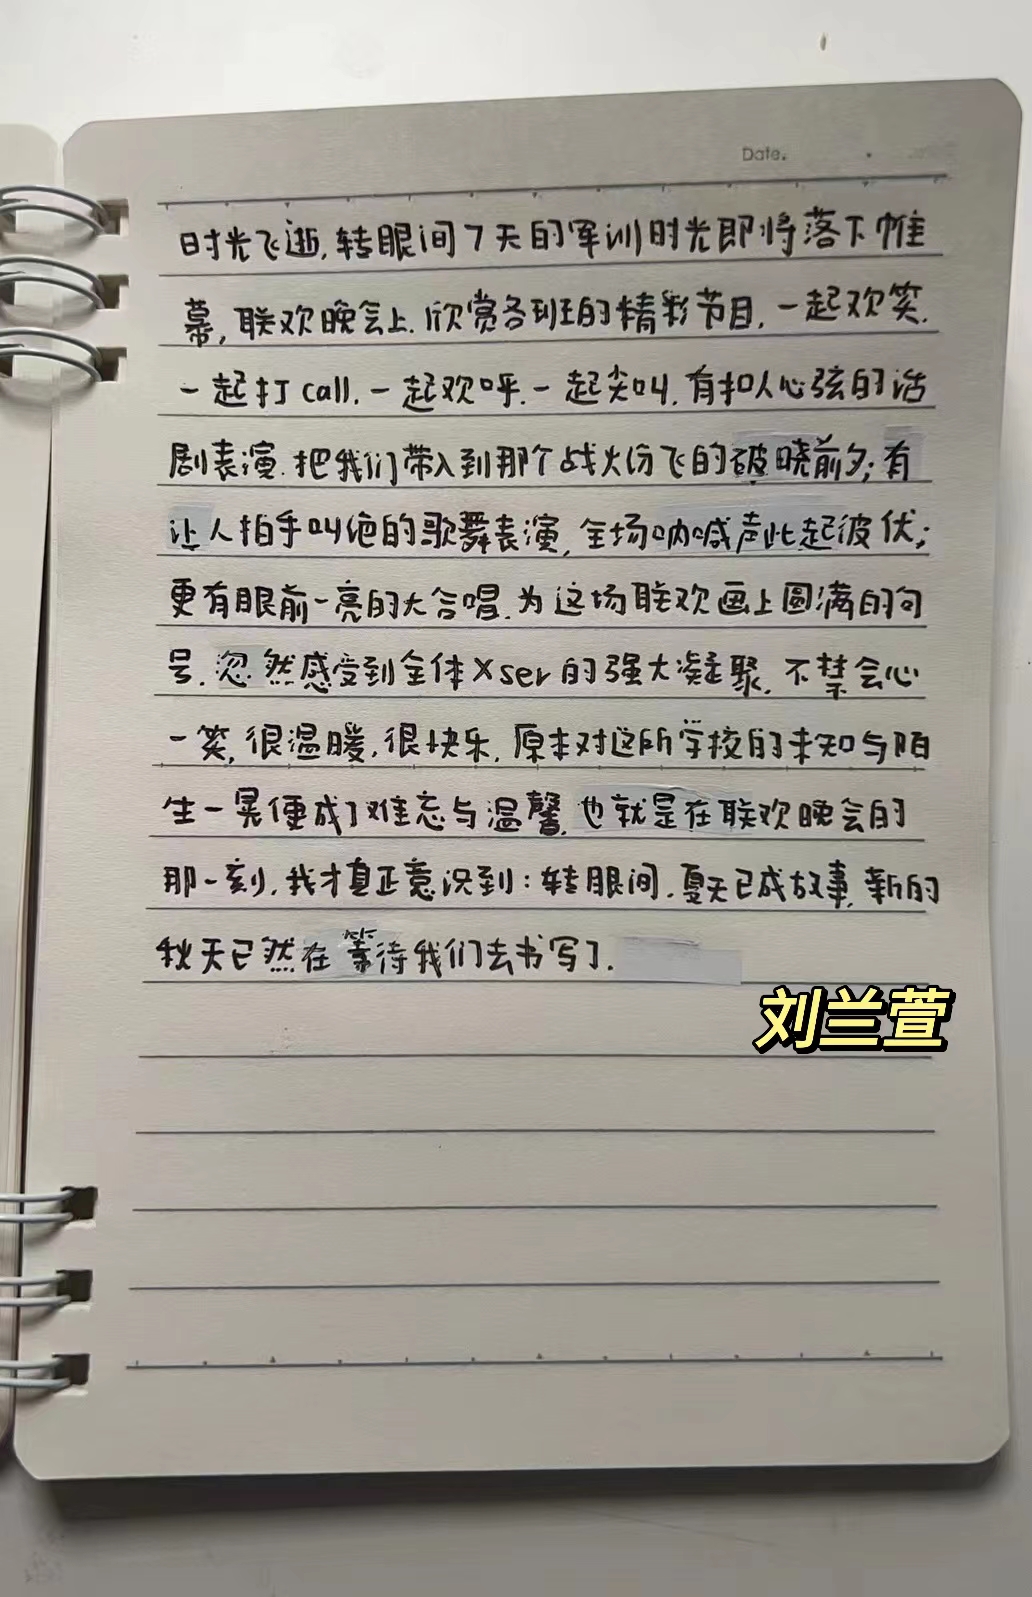 Date.
时光飞逝,转眼间7天的军训时光即将落下帷
幕,联欢晚会上.欣赏各班的精彩节目.一起欢笑.
一起打call.一起欢呼.一起尖叫.有扣人心弦的话
剧表演.把我们带入到那个战火纷飞的破晓前夕;有
让人拍手叫绝的歌舞表演,全场呐喊声此起彼伏;
更有眼前一亮的大合唱.为这场联欢画上圆满的句
号.忽然感受到全体Xser的强大凝聚.不禁会心
一笑,很温暖.很快乐.原本对这所学校的未知与陌
生一晃便成了难忘与温馨.也就是在联欢晚会的
那一刻.我才真正意识到:转眼间.夏天已成故事.新的
秋天已然在等待我们去书写了.
刘兰萱